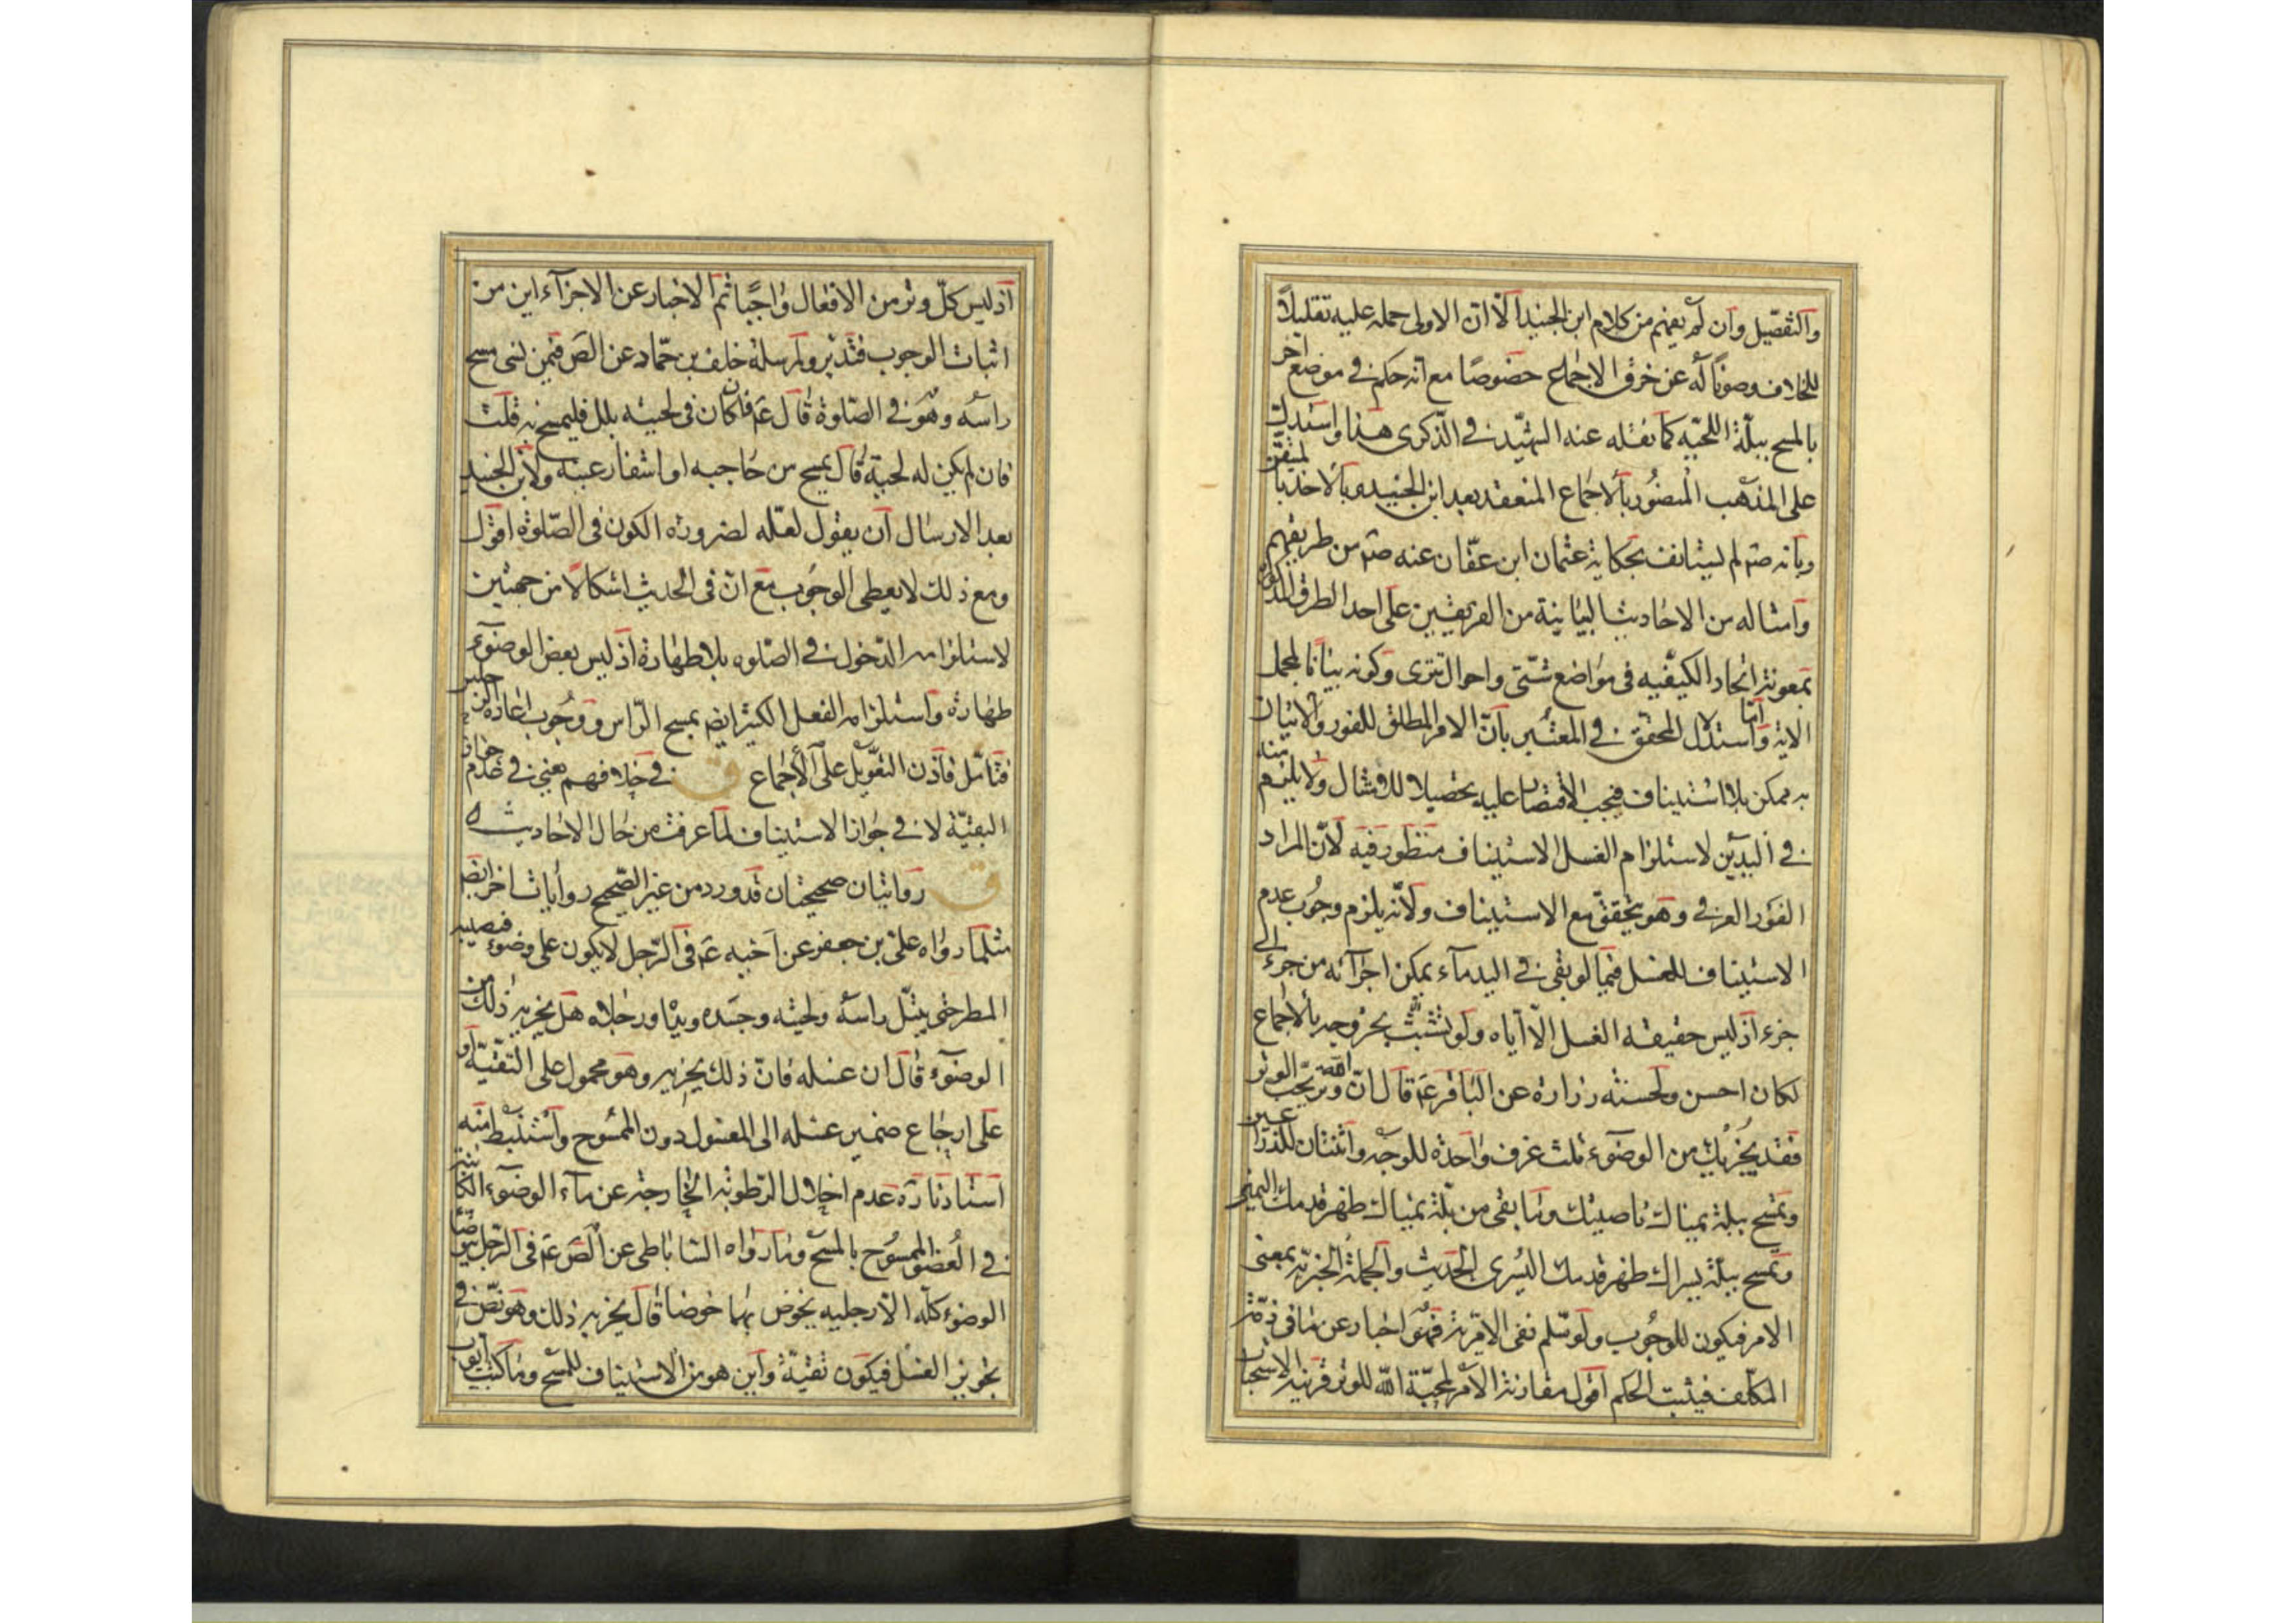 والتفصيل وان لم يفهم من كلام ابن الجنيد الا ان الاولى حمله عليه تقليلاً
للخلاف وصوناً له عن خرق الاجماع خصوصًا مع انه حكم في موضع آخر
بالمسح ببلّة اللحيه كما نقله عنه الشهيد في الذكرى هذا واستدل
على المذهب المنصور بالاجماع المنعقد بعد ابن الجنيد وبالاخذ بالمتيقن
وبانه صم لم يستانف بحكاية عثمان ابن عفّان عنه صم من طريقهم
وامثاله من الاحاديث البيانية من الفريقين على احد الطرق المذكورة
بمعونة اتحاد الكيفيه في مواضع شتّى واحوال تترى وكونه بيانا لمجمل
الاية واما استدلال المحقق في المعتبر بانّ الامر المطلق للفور والاتيان
به ممكن بلا استيناف فيجب الاقتصار عليه تحصيلا للامتثال ولا يلزم منه
في اليدين لاستلزام الغسل الاستيناف منظور فيه لانّ المراد
الفور العرفي وهو يتحقق مع الاستيناف ولانّه يلزم وجوب عدم
الاستيناف للغسل فيما لو بقى في اليد ماء يمكن اجرائه من جزء الى
جزء اذ ليس حقيقة الغسل الا اياه ولو تشبث بخروجه بالاجماع
لكان احسن ولحسنة زرارة عن الباقر ع قال انّ الله وتر يحبّ الوتر
فقد يجزيك من الوضوء ثلث غرف واحدة للوجه واثنتان للذراعين
وتمسح ببلّة يمناك ناصيتك وما بقى من بلّة يمناك ظهر قدمك اليمنى
وتمسح ببلّة يسراك ظهر قدمك اليسرى الحديث والجملة الخبريّة بمعنى
الامر فيكون للوجوب ولو سلم نفى الامرية فهو اخبار عن ما في ذمّة
المكلّف فيثبت الحكم اقول مقارنة الامر لمحبّة الله للوتر قرينة الاستحباب
اذ ليس كلّ وتر من الافعال واجبًا ثم الاخبار عن الاجزاء اين من
اثبات الوجوب فتدبر ولمرسلة خلف بن حمّاد عن الص فيمن نسى مسح
راسه وهو في الصلوة قال ع فان كان في لحيته بلل فليمسح به قلت
فان لم يكن له لحية قال يمسح من حاجبه او اشفار عينه ولابن الجنيد
بعد الارسال ان يقول لعلّه لضرورة الكون في الصّلوة اقول
ومع ذلك لا يعطى الوجوب مع انّ في الحديث اشكالاً من جهتين
لاستلزامه الدخول في الصلوه بلا طهارة اذ ليس بعض الوضوء
طهارة واستلزامه الفعل الكثير ايضا بمسح الراس ووجوب اعادة الرجلين
فتامّل فاذن التعويل على الاجماع ق في خلافهم يعنى في عدم جواز
البقيّة لا في جواز الاستيناف لما عرفت من حال الاحاديث ه
ق روايتان صحيحتان قد ورد من غير الصّحيح روايات اخر ايضا
مثل ما رواه علىّ بن جعفر عن اخيه ع في الرّجل لا يكون على وضوء فيصيبه
المطر حتى يبتلّ راسه ولحيته وجسده ويداه ورجلاه هل يجزيه ذلك من
الوضوء قال ان غسله فانّ ذلك يجزيه وهو محمول على التقيّة او
على ارجاع ضمير غسله الى المغسول دون الممسوح واستنبط منه
استادنا ره عدم اخلال الرطوبة الخارجة عن ماء الوضوء الكائنة
في العضو الممسوح بالمسح وما رواه الساباطى عن الص ع في الرّجل يتوضّا
الوضوء كلّه الا رجليه يخوض بهما خوضا قال يجزيه ذلك وهو نصّ في
تجويز الغسل فيكون تقيّة واين هو من الاستيناف للمسح وما كتب ايوب